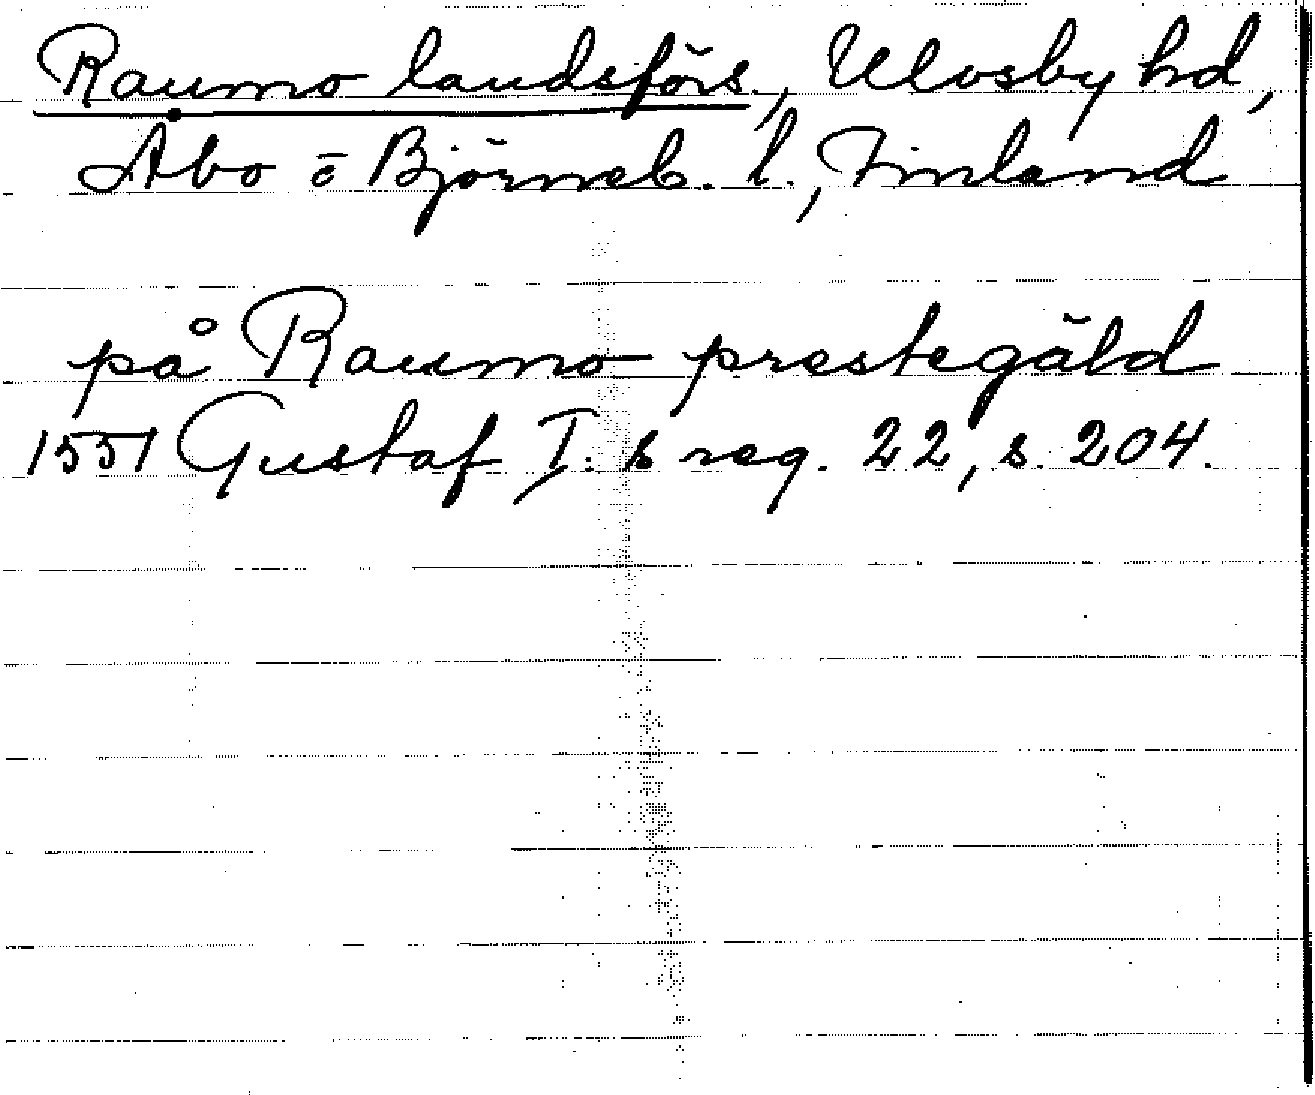 Raumo landsförs., Ulvsby hd,
Åbo o Björneb. l., Finland
på Raumo prestegäld
1551 Gustaf I:s reg. 22, s. 204.